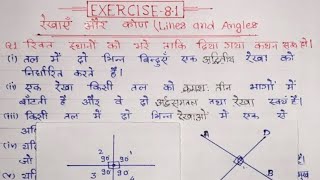 EXERCISE-8.1
रेखाएँ और कोण (Lines and Angles
Q.1 रिक्त स्थानों को भरें ताकि दिया गया कथन सत्य हो।
(i) तल में दो भिन्न बिन्दुएँ एक अद्वितीय रेखा को
निर्धारित करते हैं।
(ii) एक रेखा किसी तल को क्रमशः तीन भागों में
बाँटती है और वे दो अर्द्धसमतल तथा रेखा स्वयं हैं।
(iii) किसी तल में दो भिन्न रेखाओं में एक से
(iv)
जो
(v)
2 1
90° 90°
90° 90°
3 4
A
D